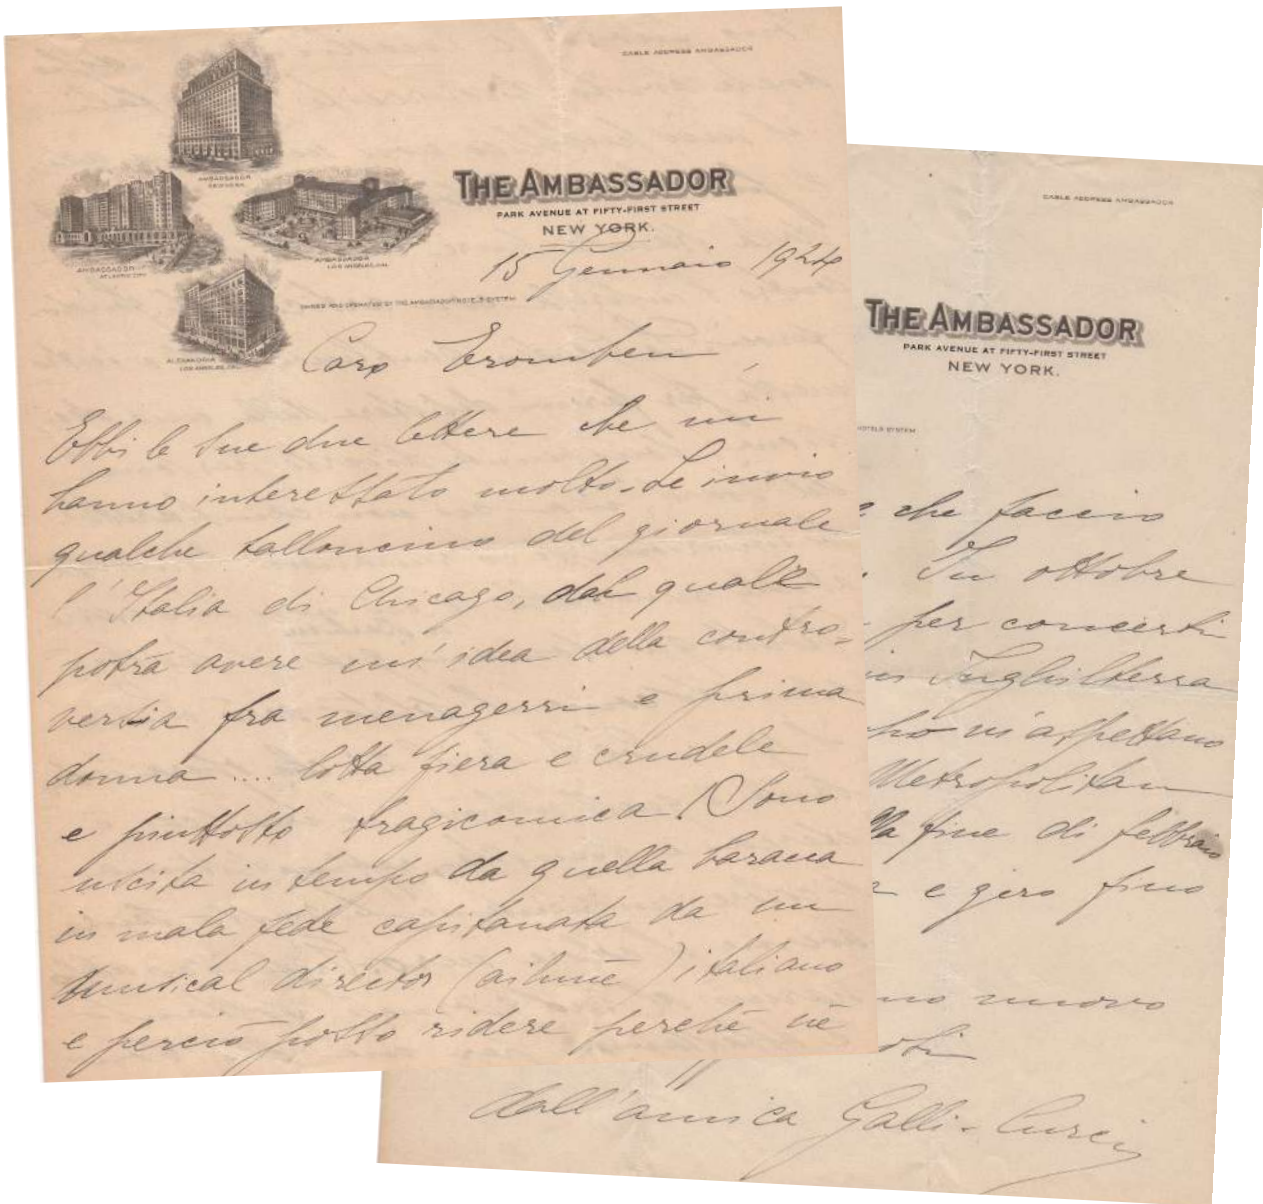 CABLE ADDRESS AMBASSADOR
AMBASSADOR
NEW YORK
THE AMBASSADOR
PARK AVENUE AT FIFTY-FIRST STREET
NEW YORK.
AMBASSADOR
ATLANTIC CITY
AMBASSADOR
LOS ANGELES, CAL.
15 Gennaio 1924
OWNED AND OPERATED BY THE AMBASSADOR HOTELS SYSTEM
ALEXANDRIA
LOS ANGELES, CAL.
Caro Tromben,
Ebbi le Sue due lettere che mi
hanno interessato molto. Le invio
qualche talloncino del giornale
l'Italia di Chicago, dal quale
potrà avere un'idea della contro-
versia fra menagerri e prima
donna .... lotta fiera e crudele
e piuttosto tragicomica! Sono
uscita in tempo da quella baracca
in mala fede capitanata da un
musical director (aihmè) italiano
e perciò posso ridere perchè nè
CABLE ADDRESS AMBASSADOR
THE AMBASSADOR
PARK AVENUE AT FIFTY-FIRST STREET
NEW YORK.
HOTELS SYSTEM
che faccio
In ottobre
per concerti
in Inghilterra
m'aspettano
Metropolitan
fine di febbraio
e giro fino
nuovo
dall'amica Galli-Curci